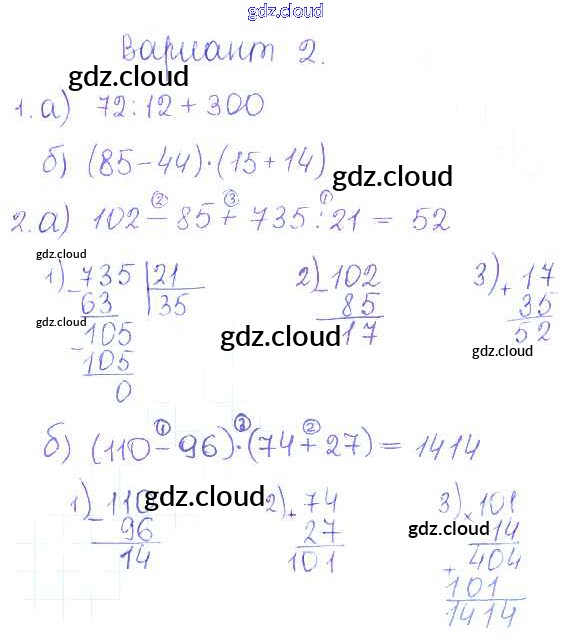 gdz.cloud
Вариант 2.
gdz.cloud
1. а) 72:12 + 300
gdz.cloud
б) (85 - 44)·(15 + 14)
gdz.cloud
② ③ ①
2. а) 102 - 85 + 735 : 21 = 52
gdz.cloud
1) - 735 | 21 2) - 102 3) + 17
63 35 85 35
gdz.cloud
- 105 17 52
gdz.cloud
gdz.cloud
105
0
① ③ ②
б) (110 - 96)·(74 + 27) = 1414
1) - 110 2) + 74 3) × 101
gdz.cloud
gdz.cloud
96 27 14
gdz.cloud
14 101 + 404
101
1414